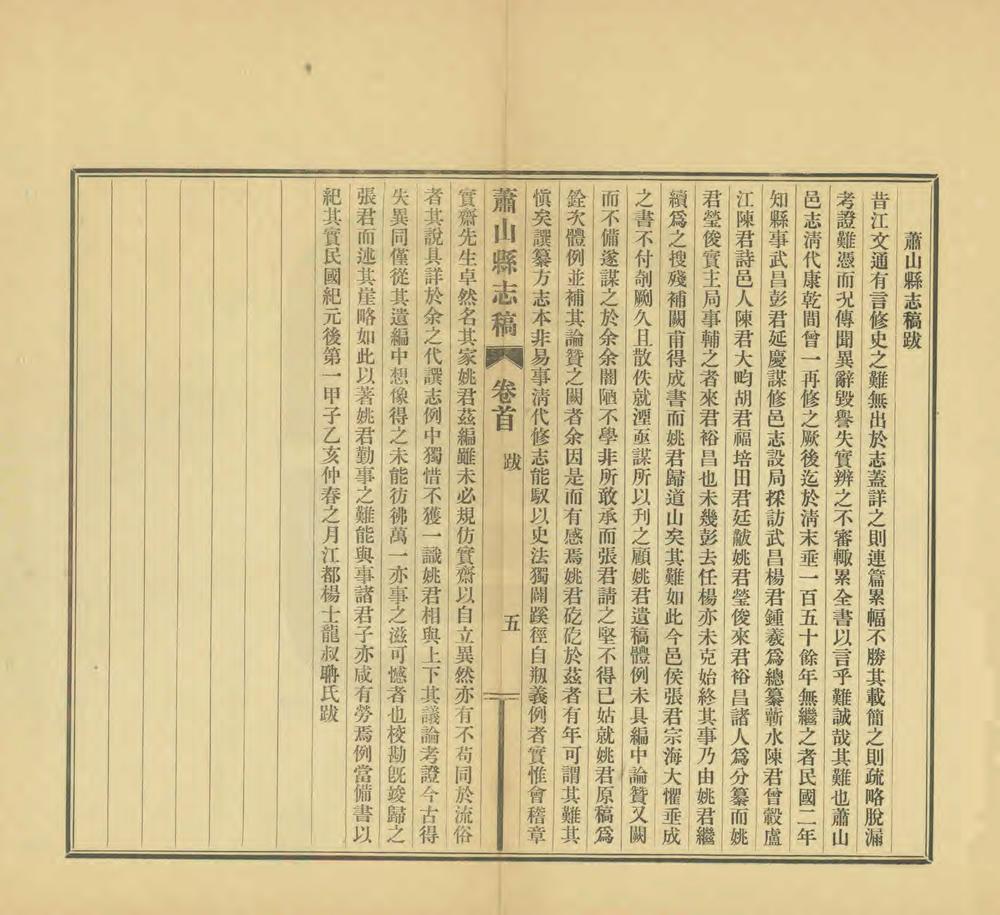 蕭山縣志稿跋
昔江文通有言修史之難無出於志蓋詳之則連篇累幅不勝其載簡之則疏略脫漏
考證難憑而況傳聞異辭毀譽失實辨之不審輒累全書以言乎難誠哉其難也蕭山
邑志清代康乾間曾一再修之厥後迄於清末垂一百五十餘年無繼之者民國二年
知縣事武昌彭君延慶謀修邑志設局採訪武昌楊君鍾羲爲總纂蘄水陳君曾㲄盧
江陳君詩邑人陳君大畇胡君福培田君廷黻姚君瑩俊來君裕昌諸人爲分纂而姚
君瑩俊實主局事輔之者來君裕昌也未幾彭去任楊亦未克始終其事乃由姚君繼
續爲之搜殘補闕甫得成書而姚君歸道山矣其難如此今邑侯張君宗海大懼垂成
之書不付剞劂久且散佚就湮亟謀所以刋之顧姚君遺稿體例未具編中論贊又闕
而不備遂謀之於余余闇陋不學非所敢承而張君請之堅不得已姑就姚君原稿爲
銓次體例並補其論贊之闕者余因是而有感焉姚君矻矻於茲者有年可謂其難其
愼矣譔纂方志本非易事清代修志能馭以史法獨闢蹊徑自剏義例者實惟會稽章
蕭山縣志稿 卷首 跋 五
實齋先生卓然名其家姚君茲編雖未必規仿實齋以自立異然亦有不苟同於流俗
者其說具詳於余之代譔志例中獨惜不獲一識姚君相與上下其議論考證今古得
失異同僅從其遺編中想像得之未能彷彿萬一亦事之滋可憾者也校勘旣竣歸之
張君而述其崖略如此以著姚君勤事之難能與事諸君子亦咸有勞焉例當備書以
紀其實民國紀元後第一甲子乙亥仲春之月江都楊士龍叔聃氏跋